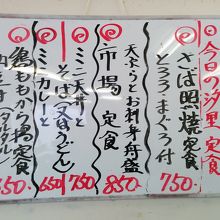 今日の汐里定食
さば照焼定食
とろろまぐろ付
750.
天ぷらとお刺身舟盛
市場定食
850.
ミニ天丼と
そば(又はうどん)
750
ミニカレーと
650
鶏ももから揚定食
650.